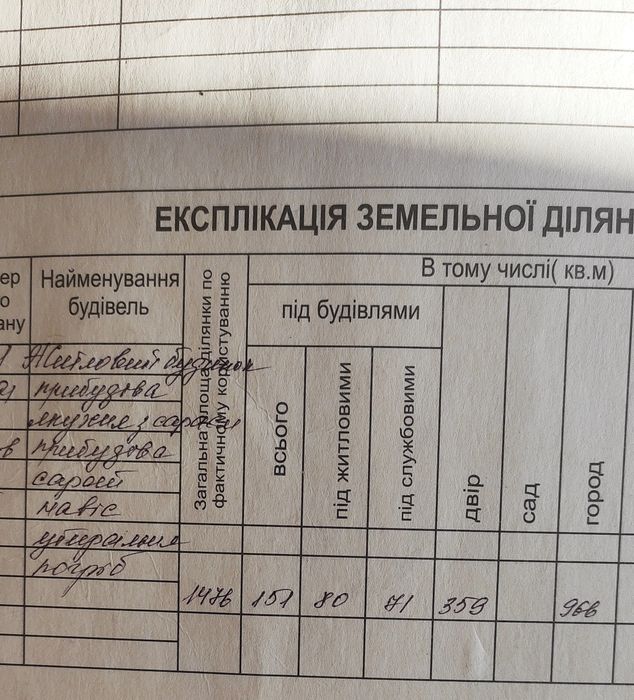 ЕКСПЛІКАЦІЯ ЗЕМЕЛЬНОЇ ДІЛЯН
ер
о
ану
Найменування
будівель
Загальна площа ділянки по
фактичному користуванню
В тому числі( кв.м)
під будівлями
всього
під житловими
під службовими
двір
сад
город
Житловий будинок
прибудова
кухня з сараєм
в прибудова
сарай
навіс
убиральня
погріб
1476 151 80 71 359 966